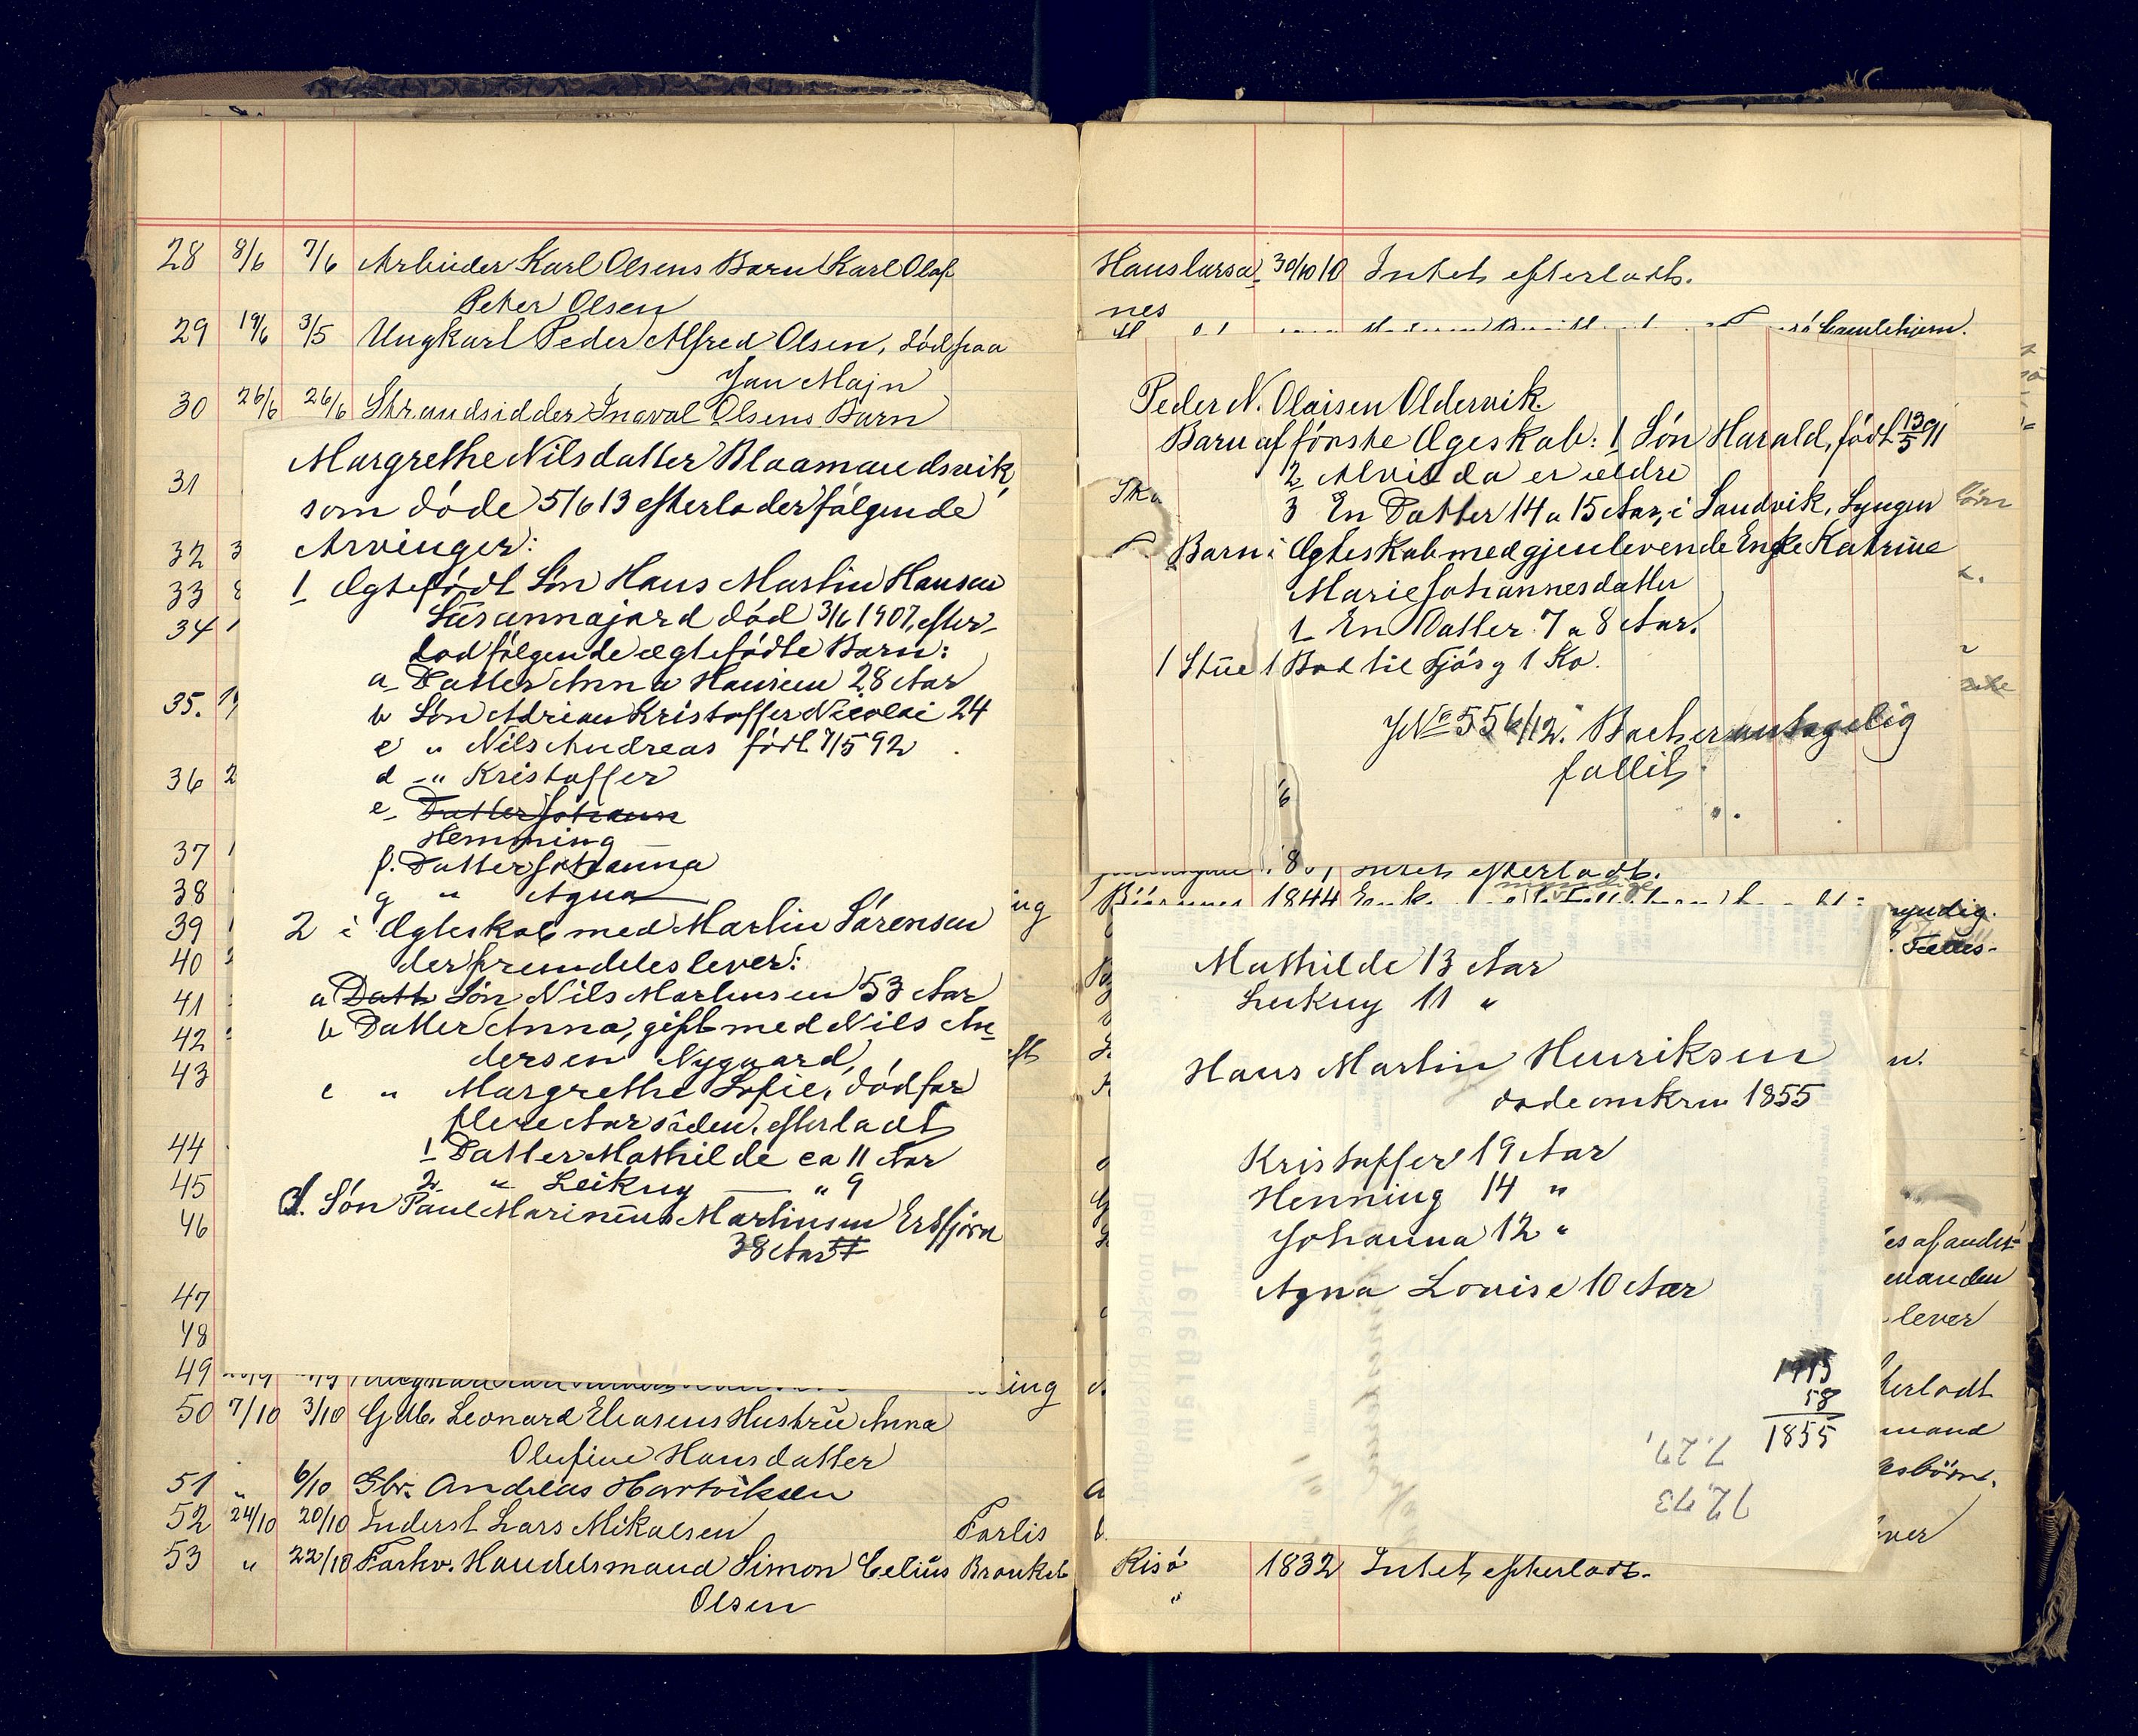 28 8/6 7/6 Arbeider Karl Olsens Barn Karl Olaf
Peter Olsen
29 19/6 3/5 Ungkarl Peder Alfred Olsen, död paa
Jan Majn
30 26/6 26/6 Strandsidder Ingval Olsens Barn
31
32 3
33
34
35.
36 2
37
38
39
40
41
42
43
44
45
46
47
48
49
Margrethe Nilsdatter Blaamandsvik,
som döde 5/6 13 efterlader følgende
Arvinger:
1 Ægtefødt Sön Hans Martin Hansen
Sürannajord död 3/6 1907, efter-
lod følgende ægtefødte Barn:
a Datter Anna Hansen 28 Aar
b Sön Adrian Kristoffer Nicolai 24
c " Nils Andreas född 7/5 92
d " Kristoffer
e Datter Johann
Hemming
f. Datter Johanna
g " Agna
2 i Ægteskab med Martin Sörensen
der fremdeles lever:
a Datt Sön Nils Martinsen 53 Aar
b Datter Anna, gift med Nils An-
dersen Nygaard,
c " Margrethe Sofie, död for
flere Aar siden, efterladt
1 Datter Mathilde ca 11 Aar
2 " Leikny " 9
d. Sön Paul Marinius Martinsen Ersfjord
38 Aar
50 7/10 3/10 Gdb. Leonard Eliasens Hustrü Anna
Olufine Hansdatter
51 " 6/10 Gbr. Andreas Hartviksen
52 24/10 20/10 Inderst Lars Mikalsen Forlis
53 " 22/10 Forhv. Handelsmand Simon Celiüs Bronkeb
Olsen
Hanslarsa- 30/10 10 Intet efterladt.
nes
Peder N. Olaisen Oldervik.
Barn af förste Ægeskab: 1 Sön Harald, född 13/5 91
2 Alvilda er ældre
3 En Datter 14 a 15 Aar, i Sandvik, Lyngen
Barn i Ægteskab med gjenlevende Enke Katrine
Marie Johannesdatter
1 En Datter 7 a 8 Aar.
1 Stüe 1 Bod til Fjös g 1 Ko.
JNo 556/12. Boet er antagelig
fallit
Intet efterladt.
1844 Enke
yndig.
Fælles-
Mathilde 13 Aar
Leikny 11 "
Hans Martin Henriksen
döde omkring 1855
Kristoffer 19 Aar
Henning 14 "
Johanna 12 "
Agna Lovise 10 Aar
1913
58
1855
7.27.
72.73
Telegram
es af andet
manden
lever
terladt
mand
esbörn.
ever
Risö 1832 Intet efterladt.
"